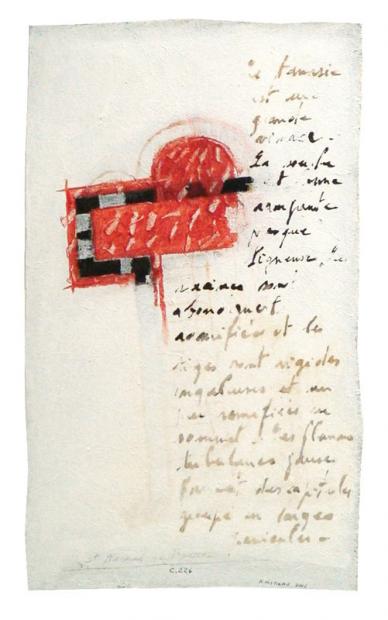 La tanaisie
est une
grande
vivace.
La souche
est une
rampante
presque
ligneuse, les
racines sont
abondamment
ramifiées et les
tiges sont rigides
anguleuses et un
peu ramifiées au
sommet. Les fleurs
tubulaires jaunes
forment des capitules
groupés en larges
C.226